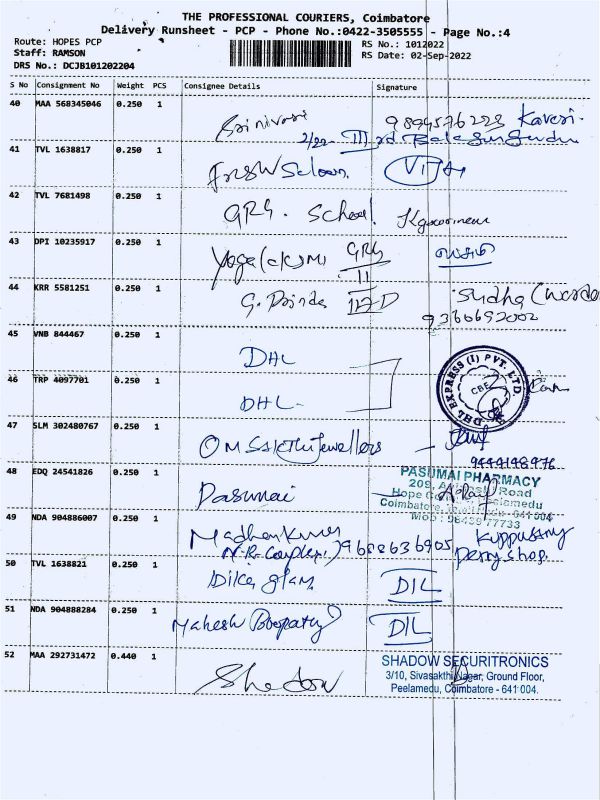 THE PROFESSIONAL COURIERS, Coimbatore
Delivery Runsheet - PCP - Phone No.:0422-3505555 - Page No.:4
Route: HOPES PCP
RS No.: 1012022
Staff: RAMSON
RS Date: 02-Sep-2022
DRS No.: DCJB101202204
S No Consignment No Weight PCS Consignee Details Signature
40 MAA 568345046 0.250 1 Srinivasi 9894576223 Kaveri.
2/22 III rd
41 TVL 1638817 0.250 1 Saloon. VIJAY
42 TVL 7681498 0.250 1 GRG. School.
43 DPI 10235917 0.250 1 Yoga GRG
II
44 KRR 5581251 0.250 1 G. D Sudha (Warden
9360692002
45 VNB 844467 0.250 1 DHL
46 TRP 4097701 0.250 1 DHL- DHL EXPRESS (I) PVT. LTD CBE
47 SLM 302480767 0.250 1 OM SAKTHI Jewellers
9444148976
48 EDQ 24541826 0.250 1 Pasumai PASUMAI PHARMACY
209, Road
Hope Peelamedu
Coimbatore, - 641 004
Mob : 98439 77733
49 NDA 904886007 0.250 1 Madhan Kumar Kuppusamy
M.R. Complex, 9688636905 Petty shop.
50 TVL 1638821 0.250 1 DIL
51 NDA 904888284 0.250 1 Mahesh Boopathy DIL
52 MAA 292731472 0.440 1 Shadow SHADOW SECURITRONICS
3/10, Sivasakthi Nagar, Ground Floor,
Peelamedu, Coimbatore - 641 004.